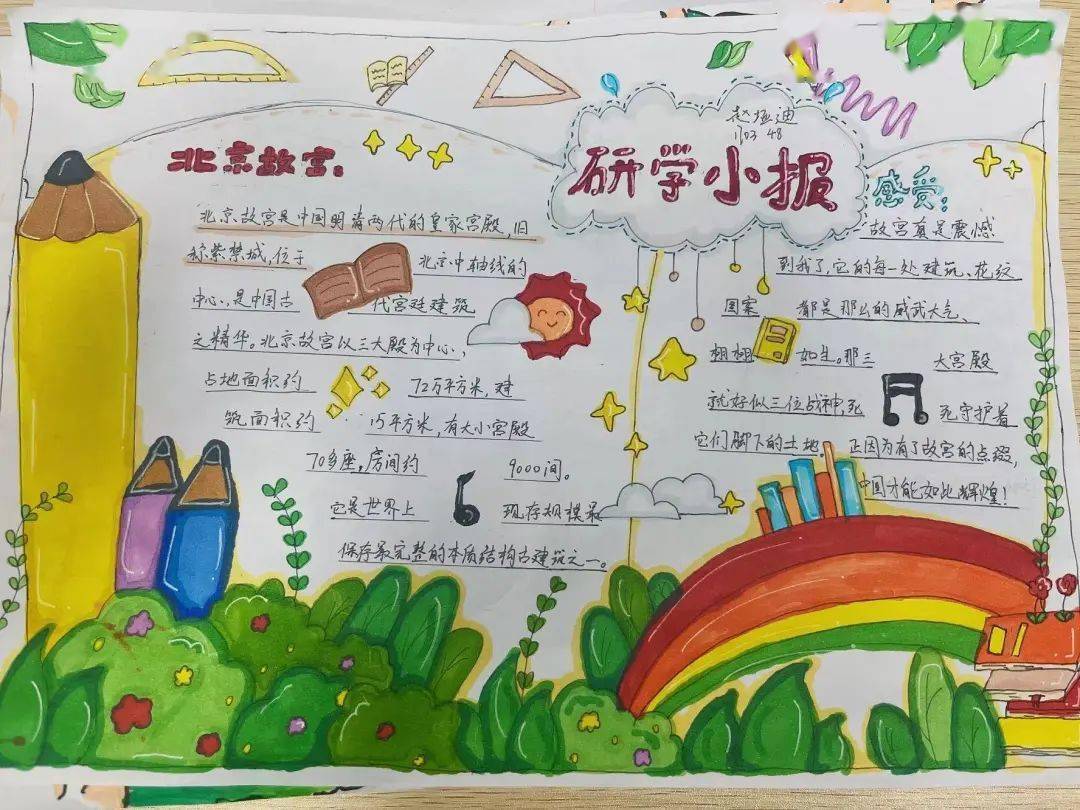 研学小报
赵垣迪
1103 48
北京故宫：
北京故宫是中国明清两代的皇家宫殿,旧
称紫禁城,位于 北京中轴线的
中心、是中国古 代宫廷建筑
之精华。北京故宫以三大殿为中心,
占地面积约 72万平方米,建
筑面积约 15平方米,有大小宫殿
70多座,房间约 9000间。
它是世界上 现存规模最
保存最完整的本质结构古建筑之一。
感受：
故宫真是震憾
到我了,它的每一处建筑、花纹
图案 都是那么的威武大气、
栩栩 如生。那三 大宫殿
就好似三位战神,死 死守护着
它们脚下的土地 正因为有了故宫的点缀,
中国才能如此辉煌!